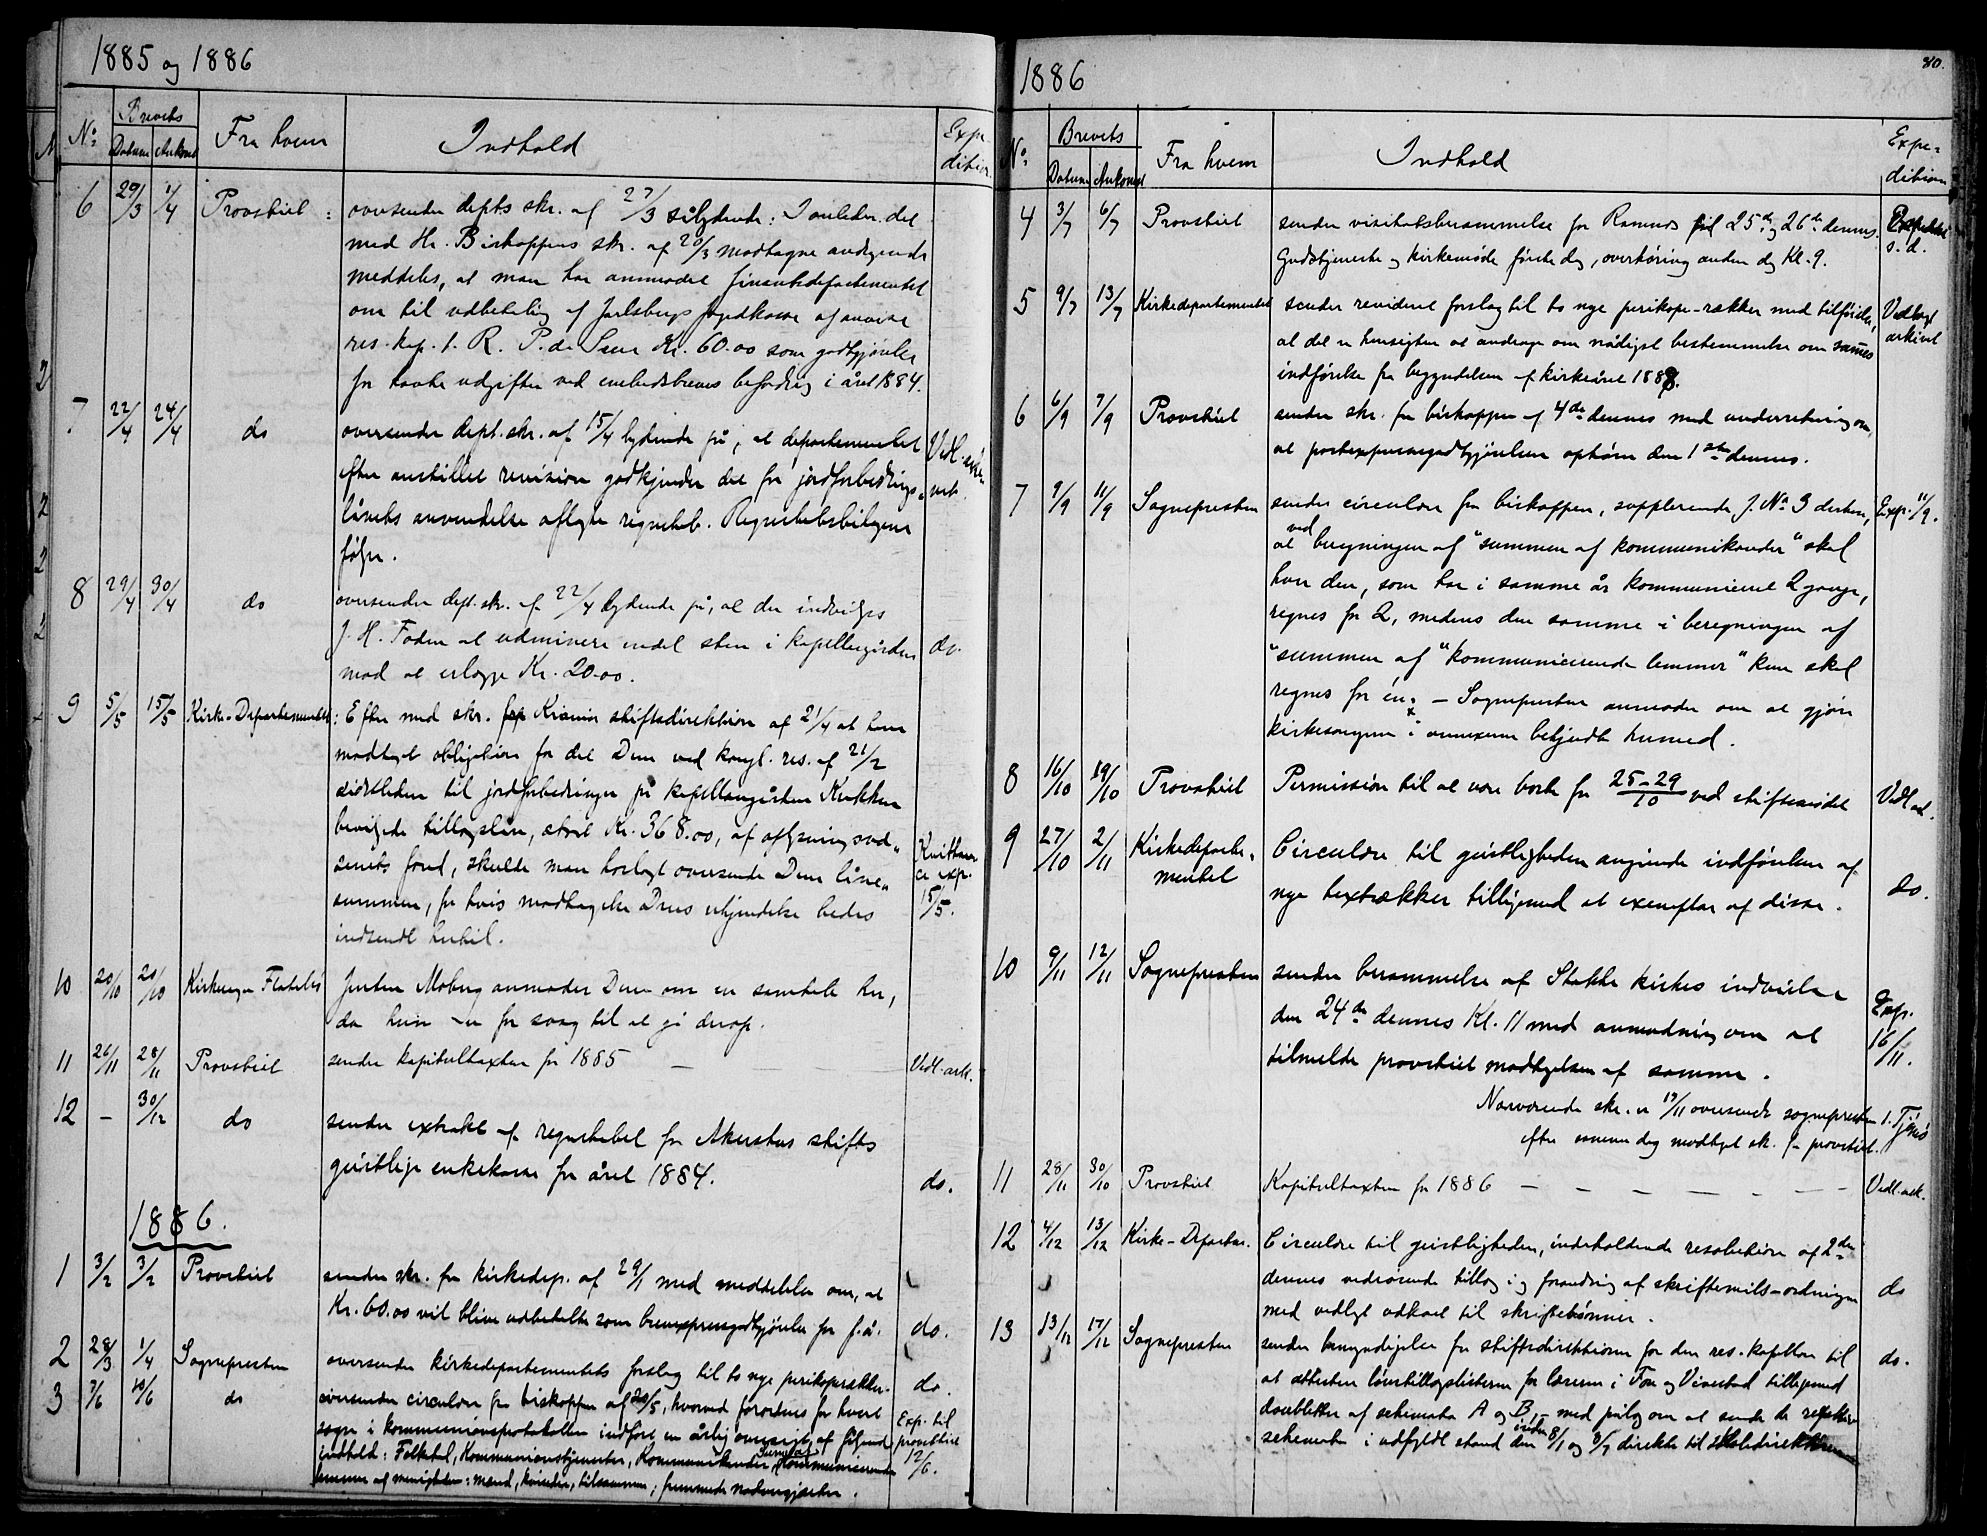 1885 og 1886
No
Brevets
Datum Ankomst
Fra hvem
Indhold
Expe
dition
6 29/3 1/4 Provstiet: oversender depts skr. af 27/3 sålydende: I anledn. det
med Hr. Biskoppens skr. af 20/3 modtagne andragende
meddeles, at man har anmodet finantsdepartementet
om til udbetaling af Jarlsbergs fogedkasse at anvise
res. kap. R. P. de Seue Kr. 60.00 som godtgjørelse
for havte udgifter ved embedsbreves befordring i året 1884.
7 22/4 24/4 do oversender dept. skr. af 15/4 lydende på, at departementet Vedl.
efter anstillet revision godkjender det for jordforbedrings-
lånets anvendelse aflagte regnskab. Regnskabsbilagene
følger.
8 29/4 30/4 do oversender dept. skr. af 22/4 lydende på, at der indvilges
J. H. Foden at udminere endel sten i kapellangården do.
mod at erlægge Kr. 20.00.
9 5/5 15/5 Kirke-Departementet: Efter med skr. fra Kr.ania stiftsdirektion af 21/4 at have
modtaget obligation for det Dem ved kongl. res. af 21/2
sidstleden til jordforbedringer på kapellangården
bevilgede tillægslån, stort Kr. 368.00, af oplysningsvæ-
senets fond, skulde man herlagt oversende Dem låne-
summen, for hvis modtagelse Deres erkjendelse bedes
indsendt hertil.
Kvittance exp. 15/5.
10 20/10 20/10 Kirkesanger Flateby Jensen Moberg anmoder Dem om en samtale her,
da hun er for svag til at gå derop.
11 26/11 28/11 Provstiet sender kapitelstaxten for 1885 — — Vedl. ark.
12 — 30/12 do sender extrakt af regnskabet for Akershus stifts
geistlige enkekasse for året 1884. do.
1886.
1 3/2 3/2 Provstiet sender skr. fra kirkedep. af 29/1 med meddelelse om, at
Kr. 60.00 vil blive udbetalte som brevexpressgodtgjørelse for f. å. do.
2 28/3 1/4 Sognepresten oversender kirkedepartementets forslag til to nye perikoperækker. do.
3 7/6 10/6 do oversender circulære fra biskoppen af 20/5, hvorved forordnes for hvert
sogn i kommunionsprotokollen indført en årlig oversigt af følgende
indhold: Folketal, Kommunionstjenester, Kommunikanter, kommunicerende
lemmer af menigheden: mænd, kvinder, tilsammen; fremmede nadvergjæster.
Exp. til
provstiet
12/6.
1886
80.
No
Brevets
Datum Ankomst
Fra hvem
Indhold
Expe=
dition
4 3/7 6/7 Provstiet sender visitatsberammelse for Ramnes til 25de og 26de dennes. Expederet
Gudstjeneste og kirkemøde første dag, overhøring anden dag Kl. 9. s. d.
5 9/7 13/7 Kirkedepartementet sender revideret forslag til to nye perikope-rækker med tilføielse, Vedlagt
at det er hensigten at andrage om nådigst bestemmelse om sammes arkivet
indførelse fra begyndelsen af kirkeåret 1887.
6 6/9 7/9 Provstiet sender skr. fra biskoppen af 4de dennes med underretning om,
at postexpressgodtgjørelsen ophører den 1ste dennes.
7 9/9 11/9 Sognepresten sender circulære fra biskoppen, supplerende J. No 3 derhen, Exp. 11/9.
at ved beregningen af "summen af kommunikanter" skal
hver den, som har i samme år kommuniceret 2 gange,
regnes for 2, medens den samme i beregningen af
"summen af "kommunicerende lemmer" kun skal
regnes for én. — Sognepresten anmoder om at gjøre
kirkesangerne i annexerne bekjendt hermed.
8 16/10 19/10 Provstiet Permission til at være borte fra 25-29/10 ved stiftsmødet Vedl. ark.
9 27/10 2/11 Kirkedeparte-
mentet
Circulære til geistligheden angående indførelsen af
nye textrækker tilligemed et exemplar af disse. do.
10 9/11 12/11 Sognepresten sender berammelse af Stokke kirkes indvielse
den 24de dennes Kl. 11 med anmodning om at
tilmelde provstiet modtagelsen af samme.
Exp.
16/11.
Nærværende skr. er 17/11 oversendt sognepresten i Tjømø
efter samme dag modtaget sk. fra provstiet.
11 28/11 30/10 Provstiet Kapitelstaxten for 1886 — — — — — Vedl. ark.
12 4/12 13/12 Kirke-Departm. Circulære til geistligheden, indeholdende resolution af 2den
dennes vedrørende tillæg i og forandring af skriftemåls-ordningen do
med vedlagt udkast til skriftebønner.
13 13/12 17/12 Sognepresten sender bemyndigelse fra stiftsdirektionen for den res. kapellan til do.
at attestere lønstillægslisterne for lærerne i Fon og Vivestad tilligemed
doubletter af schemata A og B, — med pålæg om at sende de
schemata i udfyldt stand inden 8/1 og 8/7 direkte til skoledirektøren